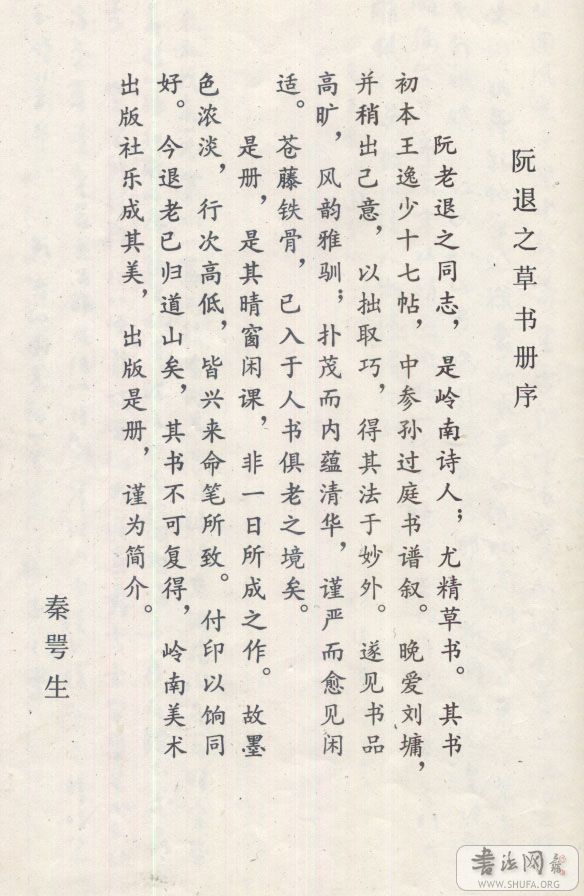 阮退之草书册序
阮老退之同志，是岭南诗人；尤精草书。其书
初本王逸少十七帖，中参孙过庭书谱叙。晚爱刘墉，
并稍出己意，以拙取巧，得其法于妙外。遂见书品
高旷，风韵雅驯；扑茂而内蕴清华，谨严而愈见闲
适。苍藤铁骨，已入于人书俱老之境矣。
是册，是其晴窗闲课，非一日所成之作。故墨
色浓淡，行次高低，皆兴来命笔所致。付印以饷同
好。今退老已归道山矣，其书不可复得，岭南美术
出版社乐成其美，出版是册，谨为简介。
秦咢生
书法网
WWW.SHUFA.ORG